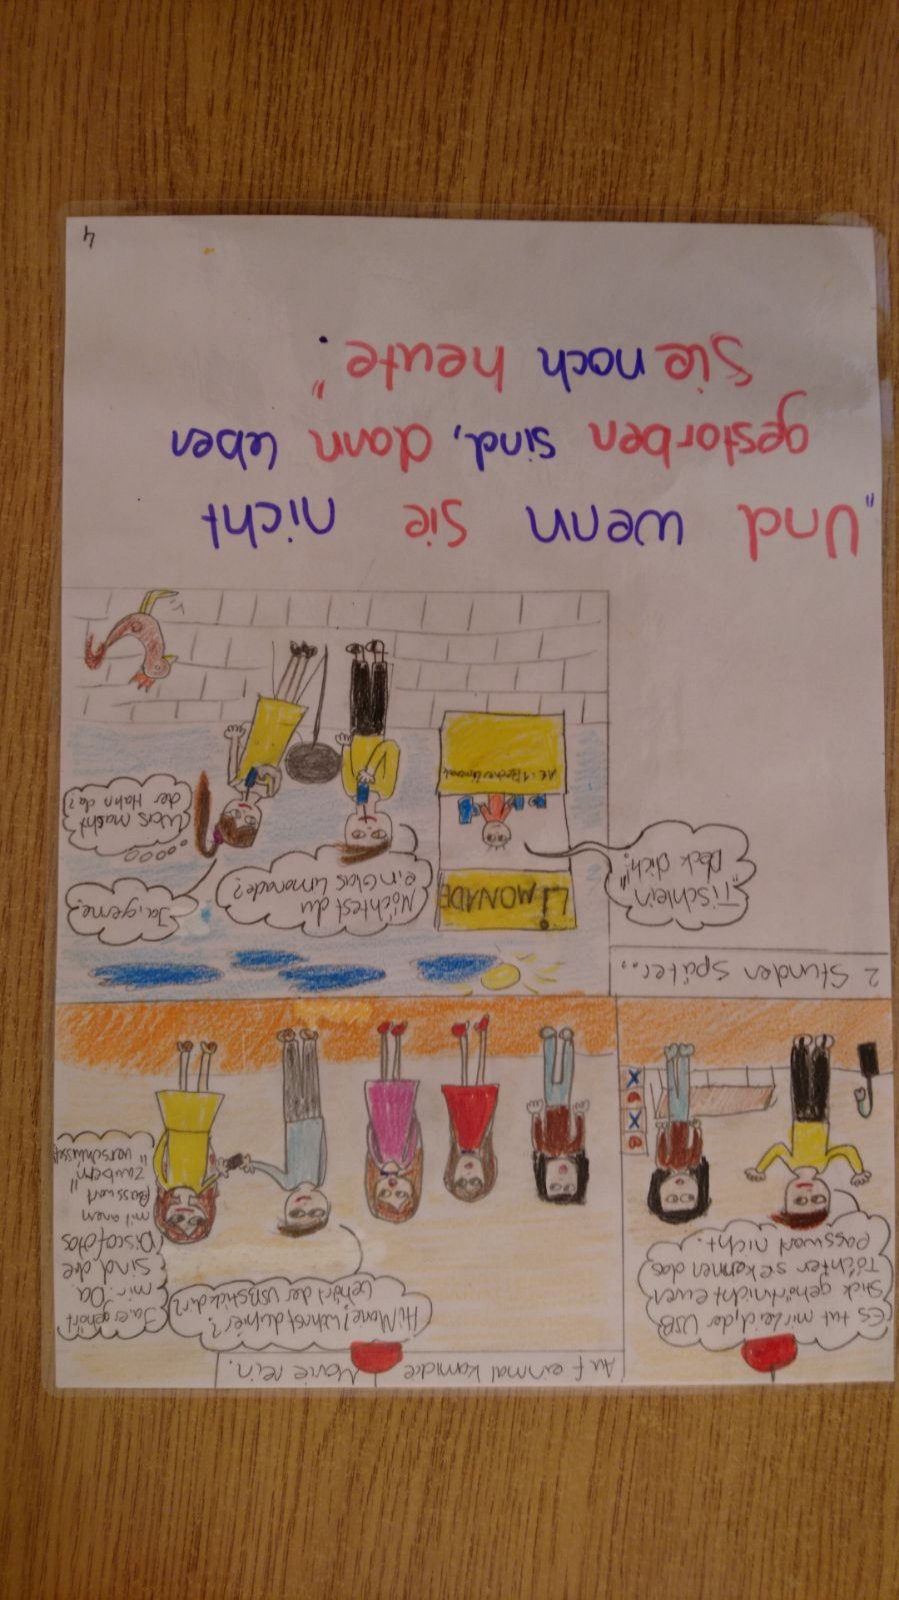 Es tut mir Leid, der USB
Stick gehört nicht euren
Töchter sie kannen das
Passwort nicht.
Auf einmal kam die Marie rein.
Hi Marie! Wohnst du hier?
Gehört der USB-Stick dir?
Ja er gehört
mir. Da
sind die
Discofotos
mit einem
Passwort
"zauberei"
verschlüsselt
2 Stunden später...
"Tischlein
Deck dich!"
LIMONADE
Möchtest du
ein Glas Limonade?
Ja, gerne!
Was macht
der Hahn da?
"Und wenn sie nicht
gestorben sind, dann leben
Sie noch heute".
4